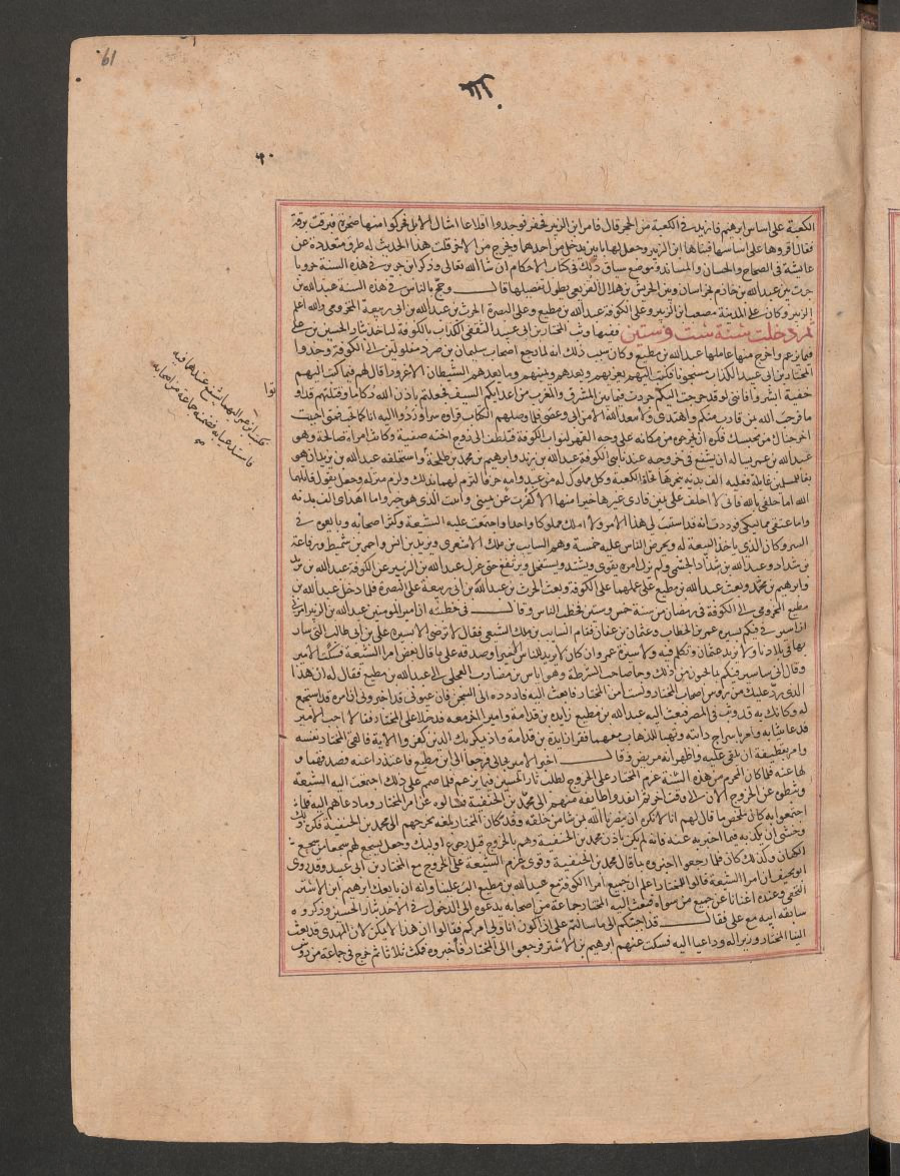 61
الكعبة على اساس ابرهيم فازيد في الكعبة من الحجر قال فامر ابن الزبير فحفر فوجدوا قلاعا امثال الابل فحركوا منها صخرة فبرقت برقة
فقال اقروها على اساسها فبناها ابن الزبير وجعل لها بابين يدخل من احدهما ويخرج من الاخر قلت هذا الحديث له طرق متعددة عن
عايشة في الصحاح والحسان والمسانيد وموضع سياق ذلك في كتاب الاحكام ان شا الله تعالى وذكر ابن جرير في هذه السنة حروبا
جرت بين عبد الله بن خازم بخراسان وبين الحرش بن هلال القريعي يطول تفصيلها قال وحج بالناس في هذه السنة عبد الله بن
الزبير وكان على المدينة مصعب بن الزبير وعلى الكوفة عبد الله بن مطيع وعلى البصرة الحرث بن عبد الله بن ابي ربيعة المخزومي والله اعلم
ثم دخلت سنة ست وستين ففيها وثب المختار بن ابي عبيد الثقفي الكذاب بالكوفة لياخذ ثار الحسين بن علي
فيما يزعم واخرج منها عاملها عبد الله بن مطيع وكان سبب ذلك انه لما رجع اصحاب سليمان بن صرد مغلولين الى الكوفة وجدوا
المختار بن ابي عبيد الكذاب مسجونا فكتب اليهم يعزيهم ويعدهم ويمنيهم وما يعدهم الشيطان الا غرورا قال لهم فيما كتب اليهم
خفية ابشروا فاني لو قد خرجت اليكم جردت فيما بين المشرق والمغرب من اعدايكم السيف فجعلتهم باذن الله ركاما وقتلتهم فذا
فرحب الله من قارب منكم واهتدى ولا يبعد الله الا من ابى وعصى فلما وصلهم الكتاب قراوه سرا وردوا اليه انا كما تحب فمتى احببت
اخرجناك من محبسك فكره ان يخرجوه من مكانه على وجه القهر لنواب الكوفة فتلطف الى زوج اخته صفية وكانت امراة صالحة وهو
عبد الله بن عمر يساله ان يشفع في خروجه عند نايبي الكوفة عبد الله بن يزيد وابرهيم بن محمد بن طلحة
الله اما حلفي بالله فاني لا احلف على يمين فارى غيرها خيرا منها الا كفرت عن يميني واتيت الذي هو خير واما اهداي الف بدنة
واما عتقي مماليكي فوددت انه قد استتب لي هذا الامر ولا املك مملوكا واحدا واجتمعت عليه الشيعة وكثر اصحابه وبايعوه في
السر وكان الذي ياخذ البيعة له ويحرض الناس عليه خمسة وهم السايب بن ملك الاشعري ويزيد بن انس واحمر بن شميط ورفاعة
بن شداد وعبد الله بن شداد الجشمي ولم يزل امره يقوى ويشتد ويستفحل ويرتفع حتى عزل عبد الله بن الزبير عن الكوفة عبد الله بن يزيد
وابرهيم بن محمد وبعث عبد الله بن مطيع على عملهما على الكوفة وبعث الحرث بن عبد الله بن ابي ربيعة على البصرة فلما دخل عبد الله بن
مطيع المخزومي الى الكوفة في رمضان من سنة خمس وستين خطب الناس وقال في خطبته ان امير المومنين عبد الله بن الزبير امرني
ان اسير في فيكم بسيرة عمر بن الخطاب وعثمان بن عفان فقام السايب بن ملك الشيعي فقال لا نرضى الا بسيرة علي بن ابي طالب التي سار
بها في بلادنا ولا نريد عثمان وتكلم فيه ولا سيرة عمر وان كان لا يريد للناس الا خيرا وصدقه على ما قال بعض امرا الشيعة فسكت الامير
وقال اني ساسير فيكم بما تحبون من ذلك وجا صاحب الشرطة وهو اياس بن مضارب العجلي الى عبد الله بن مطيع فقال له ان هذا
الذي رد عليك من روس اصحاب المختار ولست امن المختار فابعث اليه فاردده الى السجن فان عيوني قد اخبروني ان امره قد استجمع
له وكانك به قد وثب في المصر فبعث اليه عبد الله بن مطيع زايدة بن قدامة واميرا اخر معه فدخلا على المختار فقالا له اجب الامير
فدعا بثيابه وامر باسراج دابته وتهيا للذهاب معهما فقرا زايدة بن قدامة واذ يمكر بك الذين كفروا الاية فالقى المختار نفسه
وامر بقطيفة ان تلقى عليه واظهر انه مريض وقال اخبرا الامير بحالي فرجعا الى ابن مطيع فاعتذرا عنه فصدقهما و
لها عنه فلما كان المحرم من هذه السنة عزم المختار على الخروج لطلب ثار الحسين فيما يزعم فلما صمم على ذلك اجتمعت اليه الشيعة
وثبطوه عن الخروج الان الى وقت اخر ثم انفذوا طايفة منهم الى محمد بن الحنفية يسالونه عن امر المختار وما دعاهم اليه فلما
اجتمعوا به كان ملخص ما قال لهم انا لا نكره ان ينصرنا الله بمن شا من خلقه وقد كان المختار بلغه مخرجهم الى محمد بن الحنفية فكره ذلك
وخشي ان يكذبه فيما اخبر به عنه فانه لم يكن باذن محمد بن الحنفية وهم بالخروج قبل رجوع اوليك وجعل يسجع لهم سجعا من سجع
الكهان وكذلك كان فلما رجعوا اخبروه بما قال محمد بن الحنفية وقوي عزم الشيعة على الخروج مع المختار بن ابي عبيد وقد روى
ابو مخنف ان امرا الشيعة قالوا للمختار اعلم ان جميع امرا الكوفة مع عبد الله بن مطيع الب علينا وانه ان بايعك ابرهيم ابن الاشتر
النخعي وحده اغنانا عن جميع من سواه فبعث اليه المختار جماعة من اصحابه يدعوه الى الدخول في الاخذ بثار الحسين وذكروه
سابقة ابيه مع علي فقال قد اجبتكم الى ما سالتم على ان اكون انا ولي امركم فقالوا ان هذا لا يمكن لان المهدي قد بعث
الينا المختار وزيرا له وداعيا اليه فسكت عنهم ابرهيم بن الاشتر فرجعوا الى المختار فاخبروه فمكث ثلاثا ثم خرج في جماعة من روس